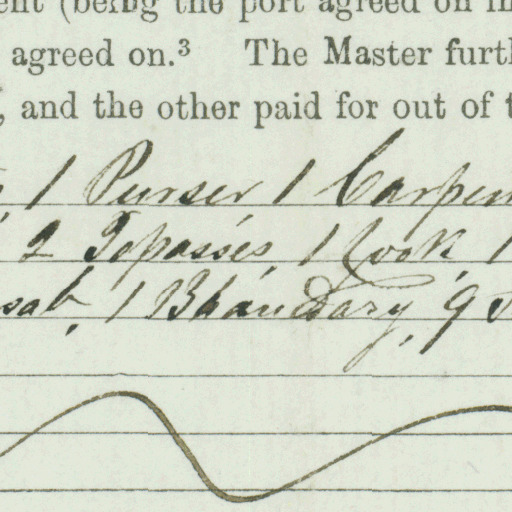 ent (being the port agreed on in
agreed on.³ The Master furth
, and the other paid for out of t
1 Purser 1 Carpen
2 Topasses, 1 Cook, 1
sab, 1 Bhandary, 9